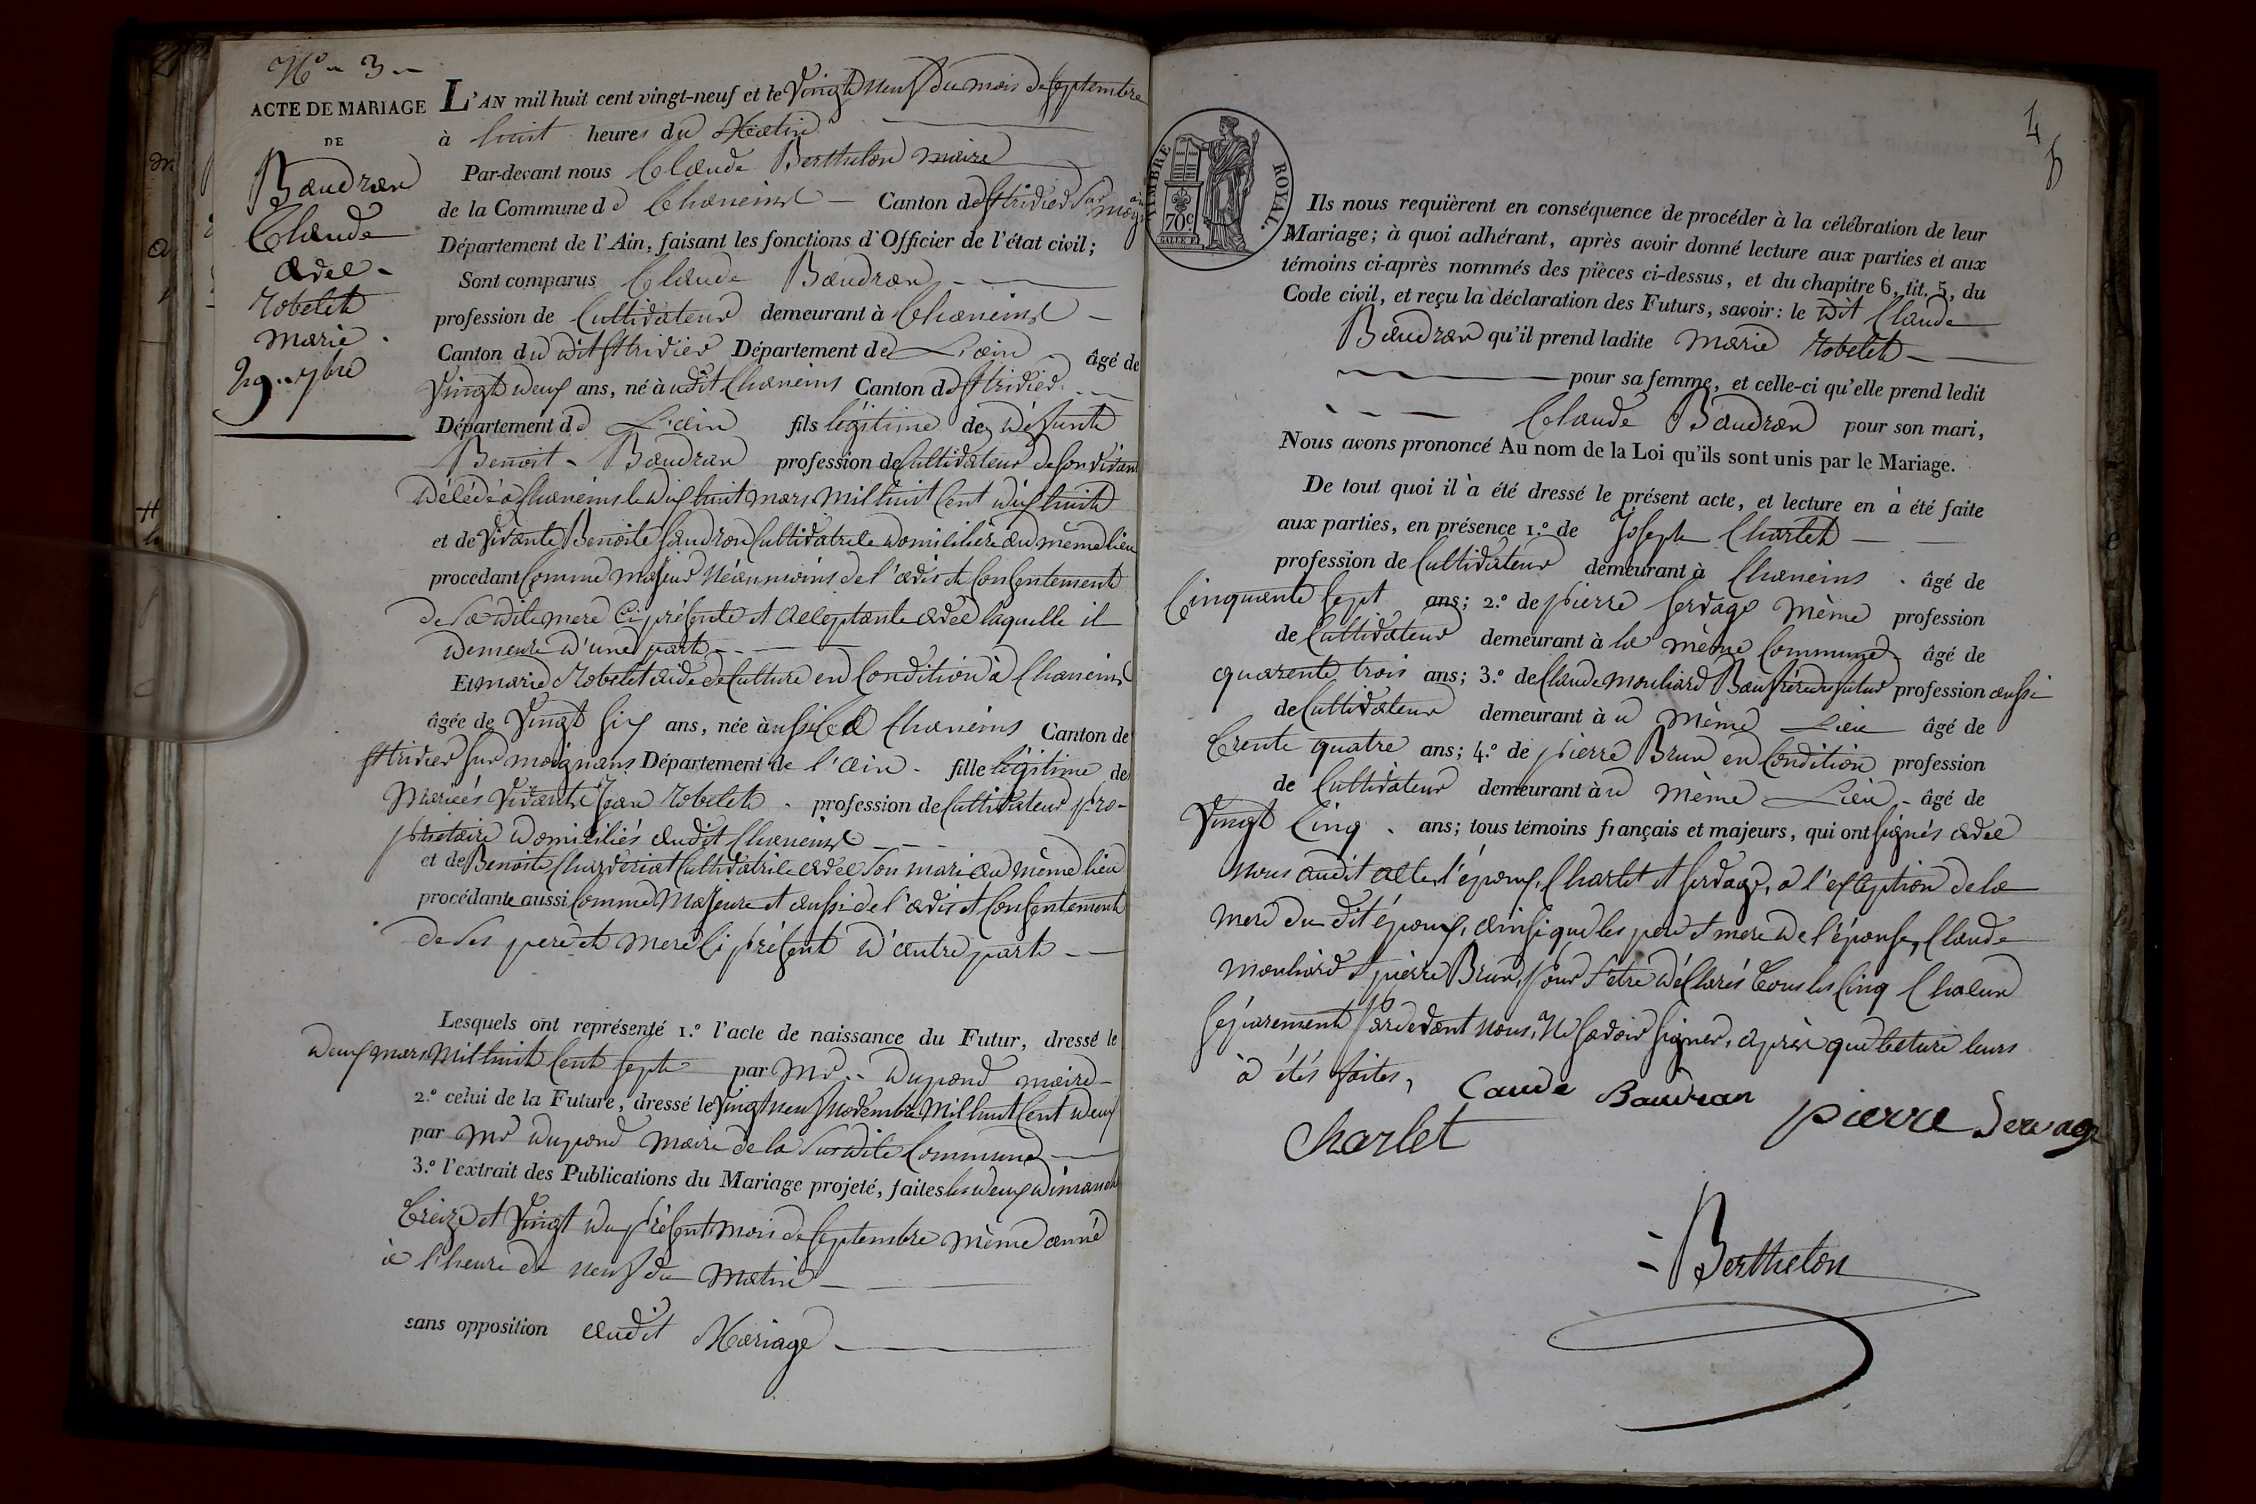 N.o 3
ACTE DE MARIAGE
DE
Baudran
Claude
avec
Robelet
Marie
29. 7bre
L'AN mil huit cent vingt-neuf et le vingt neuf du mois de septembre
à huit heures du Matin
Par-devant nous Claude Berthelon maire
de la Commune de Chaneins Canton de St trivier sur
Département de l'Ain, faisant les fonctions d'Officier de l'état civil;
Sont comparus Claude Baudran
profession de Cultivateur demeurant à Chaneins
Canton du dit St trivier Département de L'ain âgé de
vingt deux ans, né audit Chaneins Canton de St trivier
Département de L'ain fils légitime de défunt
Benoit Baudran profession de Cultivateur de son vivant
décédé à Chaneins le dix huit mars mil huit Cent dix huit
et de vivante Benoite Cultivatrice domiciliée au même lieu
procedant Comme majeur Néanmoins de l'avis et Consentement
de Sa dite mere Ci présente et acceptante avec laquelle il
demeure d'une part
Et marie Robelet aide de Culture en Condition à Chaneins
âgée de vingt six ans, née aussi à Chaneins Canton de
St trivier sur moignans Département de l'ain fille légitime de
Mariés vivants Jean Robelet profession de Cultivateur pro-
prietaire domiciliés audit Chaneins
et de Benoite Charderiat Cultivatrice avec Son mari au même lieu
procédante aussi Comme Majeure et aussi de l'avis et Consentement
de Ses pere et mere Ci présent d'autre part
Lesquels ont représenté 1.º l'acte de naissance du Futur, dressé le
deux mars Mil huit Cent sept par Mr. Dupond maire
2.º celui de la Future, dressé le vingt neuf novembre Mil huit Cent deux
par Mr Dupond Maire de la Susdite Commune
3.º l'extrait des Publications du Mariage projeté, faites les deux dimanch
treize et vingt du présent mois de Septembre même année
à l'heure de neuf du Matin
sans opposition audit Mariage
4
TIMBRE ROYAL.
70c
Ils nous requièrent en conséquence de procéder à la célébration de leur
Mariage; à quoi adhérant, après avoir donné lecture aux parties et aux
témoins ci-après nommés des pièces ci-dessus, et du chapitre 6, tit. 5, du
Code civil, et reçu la déclaration des Futurs, savoir: le dit Claude
Baudran qu'il prend ladite Marie Robelet
pour sa femme, et celle-ci qu'elle prend ledit
Claude Baudran pour son mari,
Nous avons prononcé Au nom de la Loi qu'ils sont unis par le Mariage.
De tout quoi il à été dressé le présent acte, et lecture en à été faite
aux parties, en présence 1.º de Joseph Charlet
profession de Cultivateur demeurant à Chaneins âgé de
Cinquante Sept ans; 2.º de pierre Servage même profession
de Cultivateur demeurant à la même Commune âgé de
quarente trois ans; 3.º de Claude Mouliard Beaufrére du futur profession aussi
de Cultivateur demeurant àu même Lieu âgé de
trente quatre ans; 4.º de pierre Brun en Condition profession
de Cultivateur demeurant àu même Lieu âgé de
vingt Cinq ans; tous témoins français et majeurs, qui ont signés avec
Nous audit acte, l'époux, Charlet et Servage, a l'exception de la
mere du dit époux, ainsi que les pere et mere de l'épouse, Claude
Mouliard et pierre Brun, pour S'etre déClarés tous les Cinq Chacun
Séparement pardevant nous, Ne Savoir Signer, après que lecture leurs
à étés faites,
Caude Baudran
pierre Servage
Charlet
Berthelon